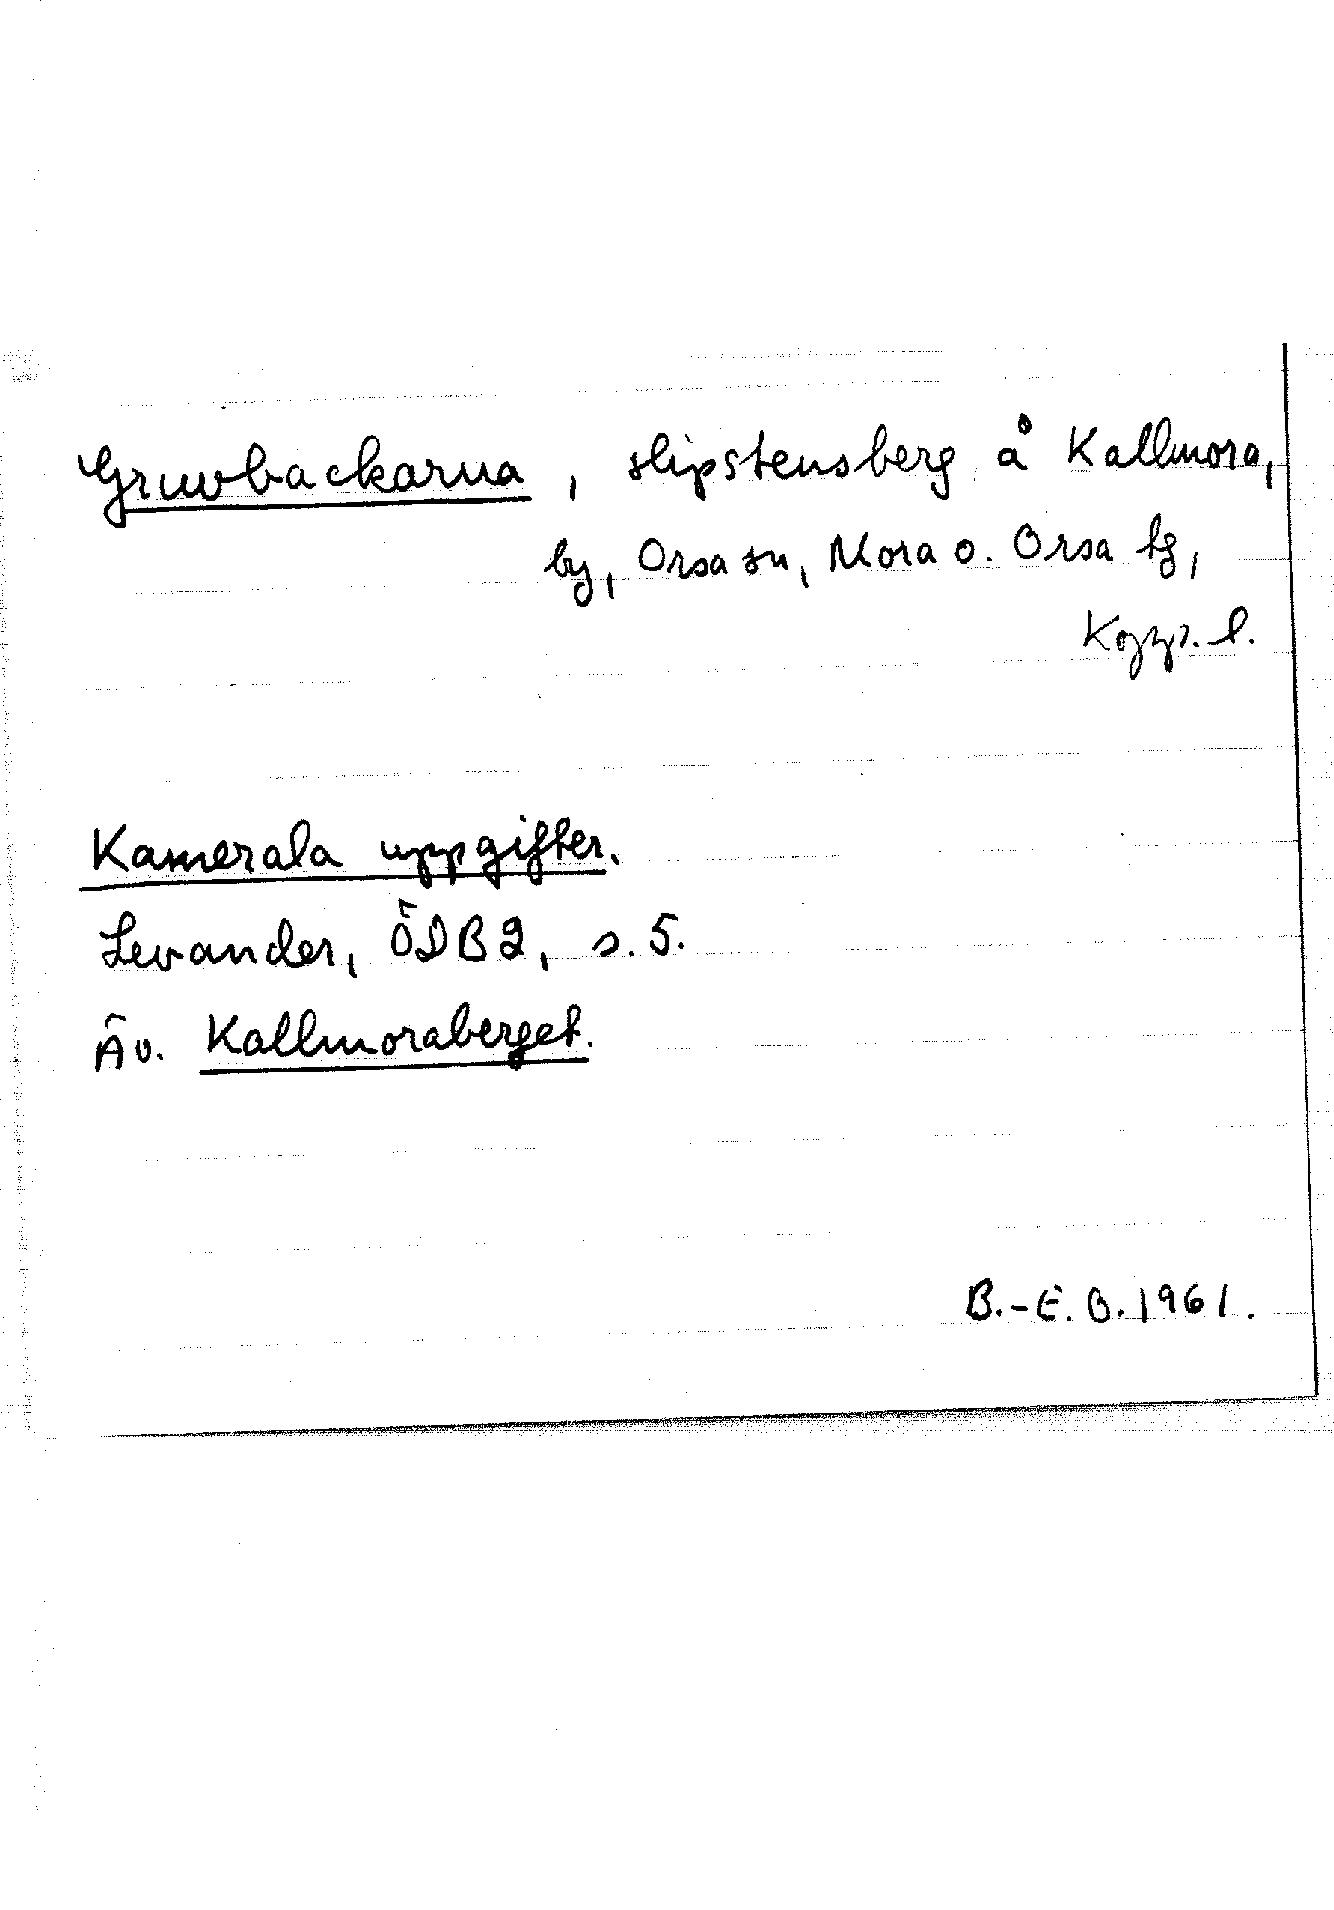 Gruvbackarna, slipstensberg å Kallmora,
by, Orsa sn, Mora o. Orsa tg,
Kopp. l.
Kamerala uppgifter.
Levander, ÖDB 2, s. 5.
Äv. Kallmoraberget.
B.-E. B. 1961.